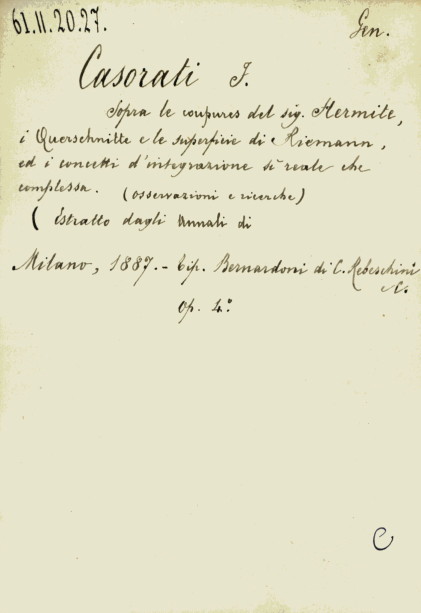 61.11.20.27.
Gen.
Casorati F.
Sopra le coupures del sig. Hermite,
i Querschnitte e le superficie di Riemann,
ed i concetti d'integrazione sì reale che
complessa. (osservazioni e ricerche)
( Estratto dagli Annali di
Milano, 1887. - Tip. Bernardoni di C. Rebeschini
e C.
op. 4.°
C